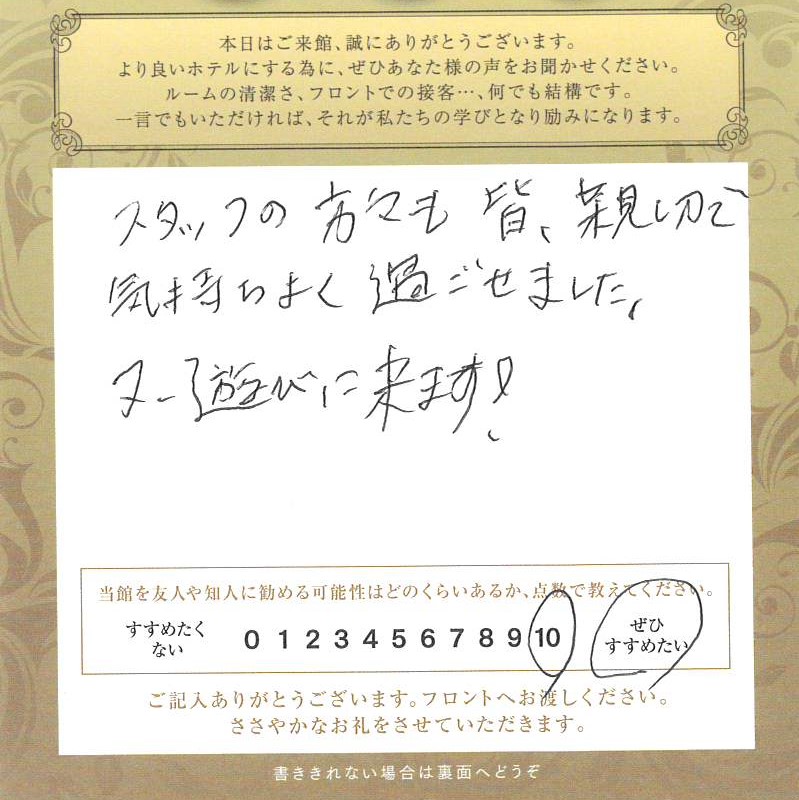 本日はご来館、誠にありがとうございます。
より良いホテルにする為に、ぜひあなた様の声をお聞かせください。
ルームの清潔さ、フロントでの接客…、何でも結構です。
一言でもいただければ、それが私たちの学びとなり励みになります。
スタッフの方々も皆、親切で
気持ちよく過ごせました。
又遊びに来ます!
当館を友人や知人に勧める可能性はどのくらいあるか、点数で教えてください。
すすめたく
ない
0 1 2 3 4 5 6 7 8 9 10
ぜひ
すすめたい
ご記入ありがとうございます。フロントへお渡しください。
ささやかなお礼をさせていただきます。
書ききれない場合は裏面へどうぞ